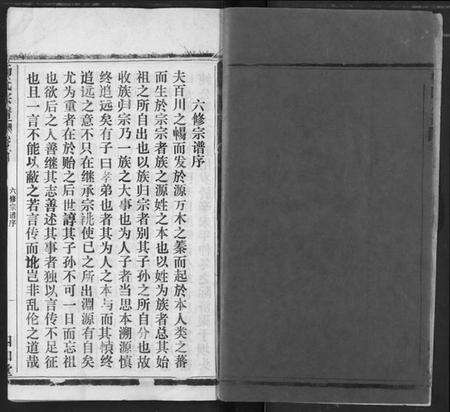 六修宗谱序
夫百川之暢而发於源万木之蓁而起於本人类之蕃
而生於宗宗者族之源姓之本也以姓为族者总其始
祖之所自出也以族归宗者别其子孙之所自分也故
收族归宗乃一族之大事也为人子者当思本溯源慎
终追远矣有子曰孝弟也者其为人之本与而其慎终
追远之意不只在继承宗祧使己之所出渊源有自矣
尤为重者在於贻之后世谆其子孙不可一日而忘祖
也欲后之人善继其志善述其事者独以言传不足征
也且一言不能以蔽之若言传而讹岂非乱伦之道哉
六修宗谱序